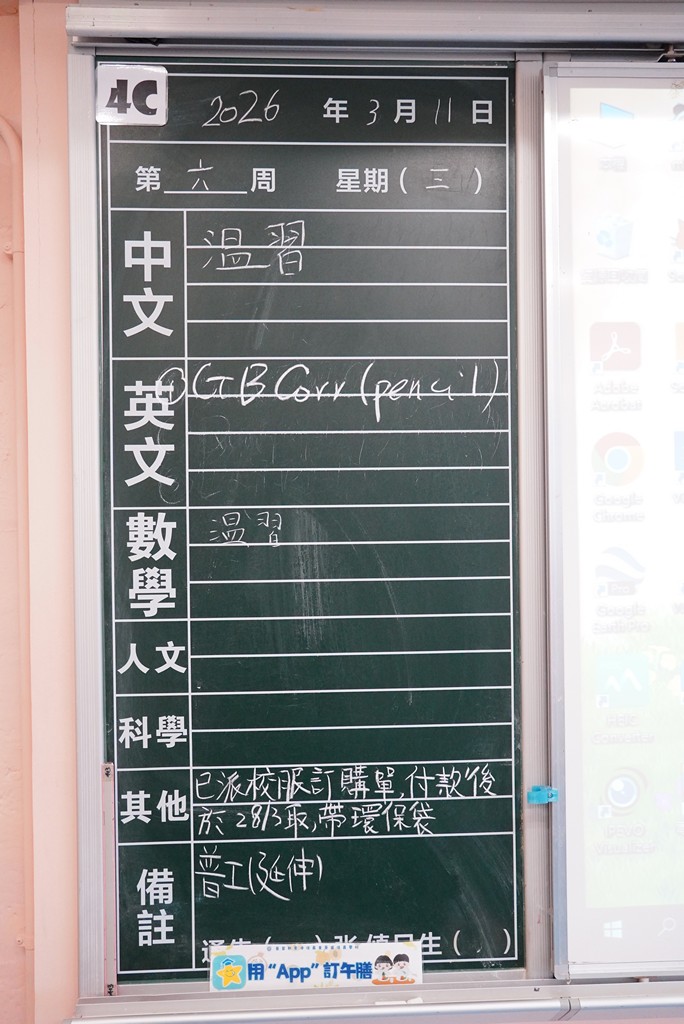 4C
2026 年 3 月 11 日
第 六 周 星期 ( 三 )
中文 温習
英文 ① GB Corr (pencil)
數學 温習
人文
科學
其他 已派校服訂購單,付款後
於 28/3取,帶環保袋
備註 普工(延伸)
生 ( )
用 “App” 訂午膳
Adobe
Acrobat
Google
Chrome
Google